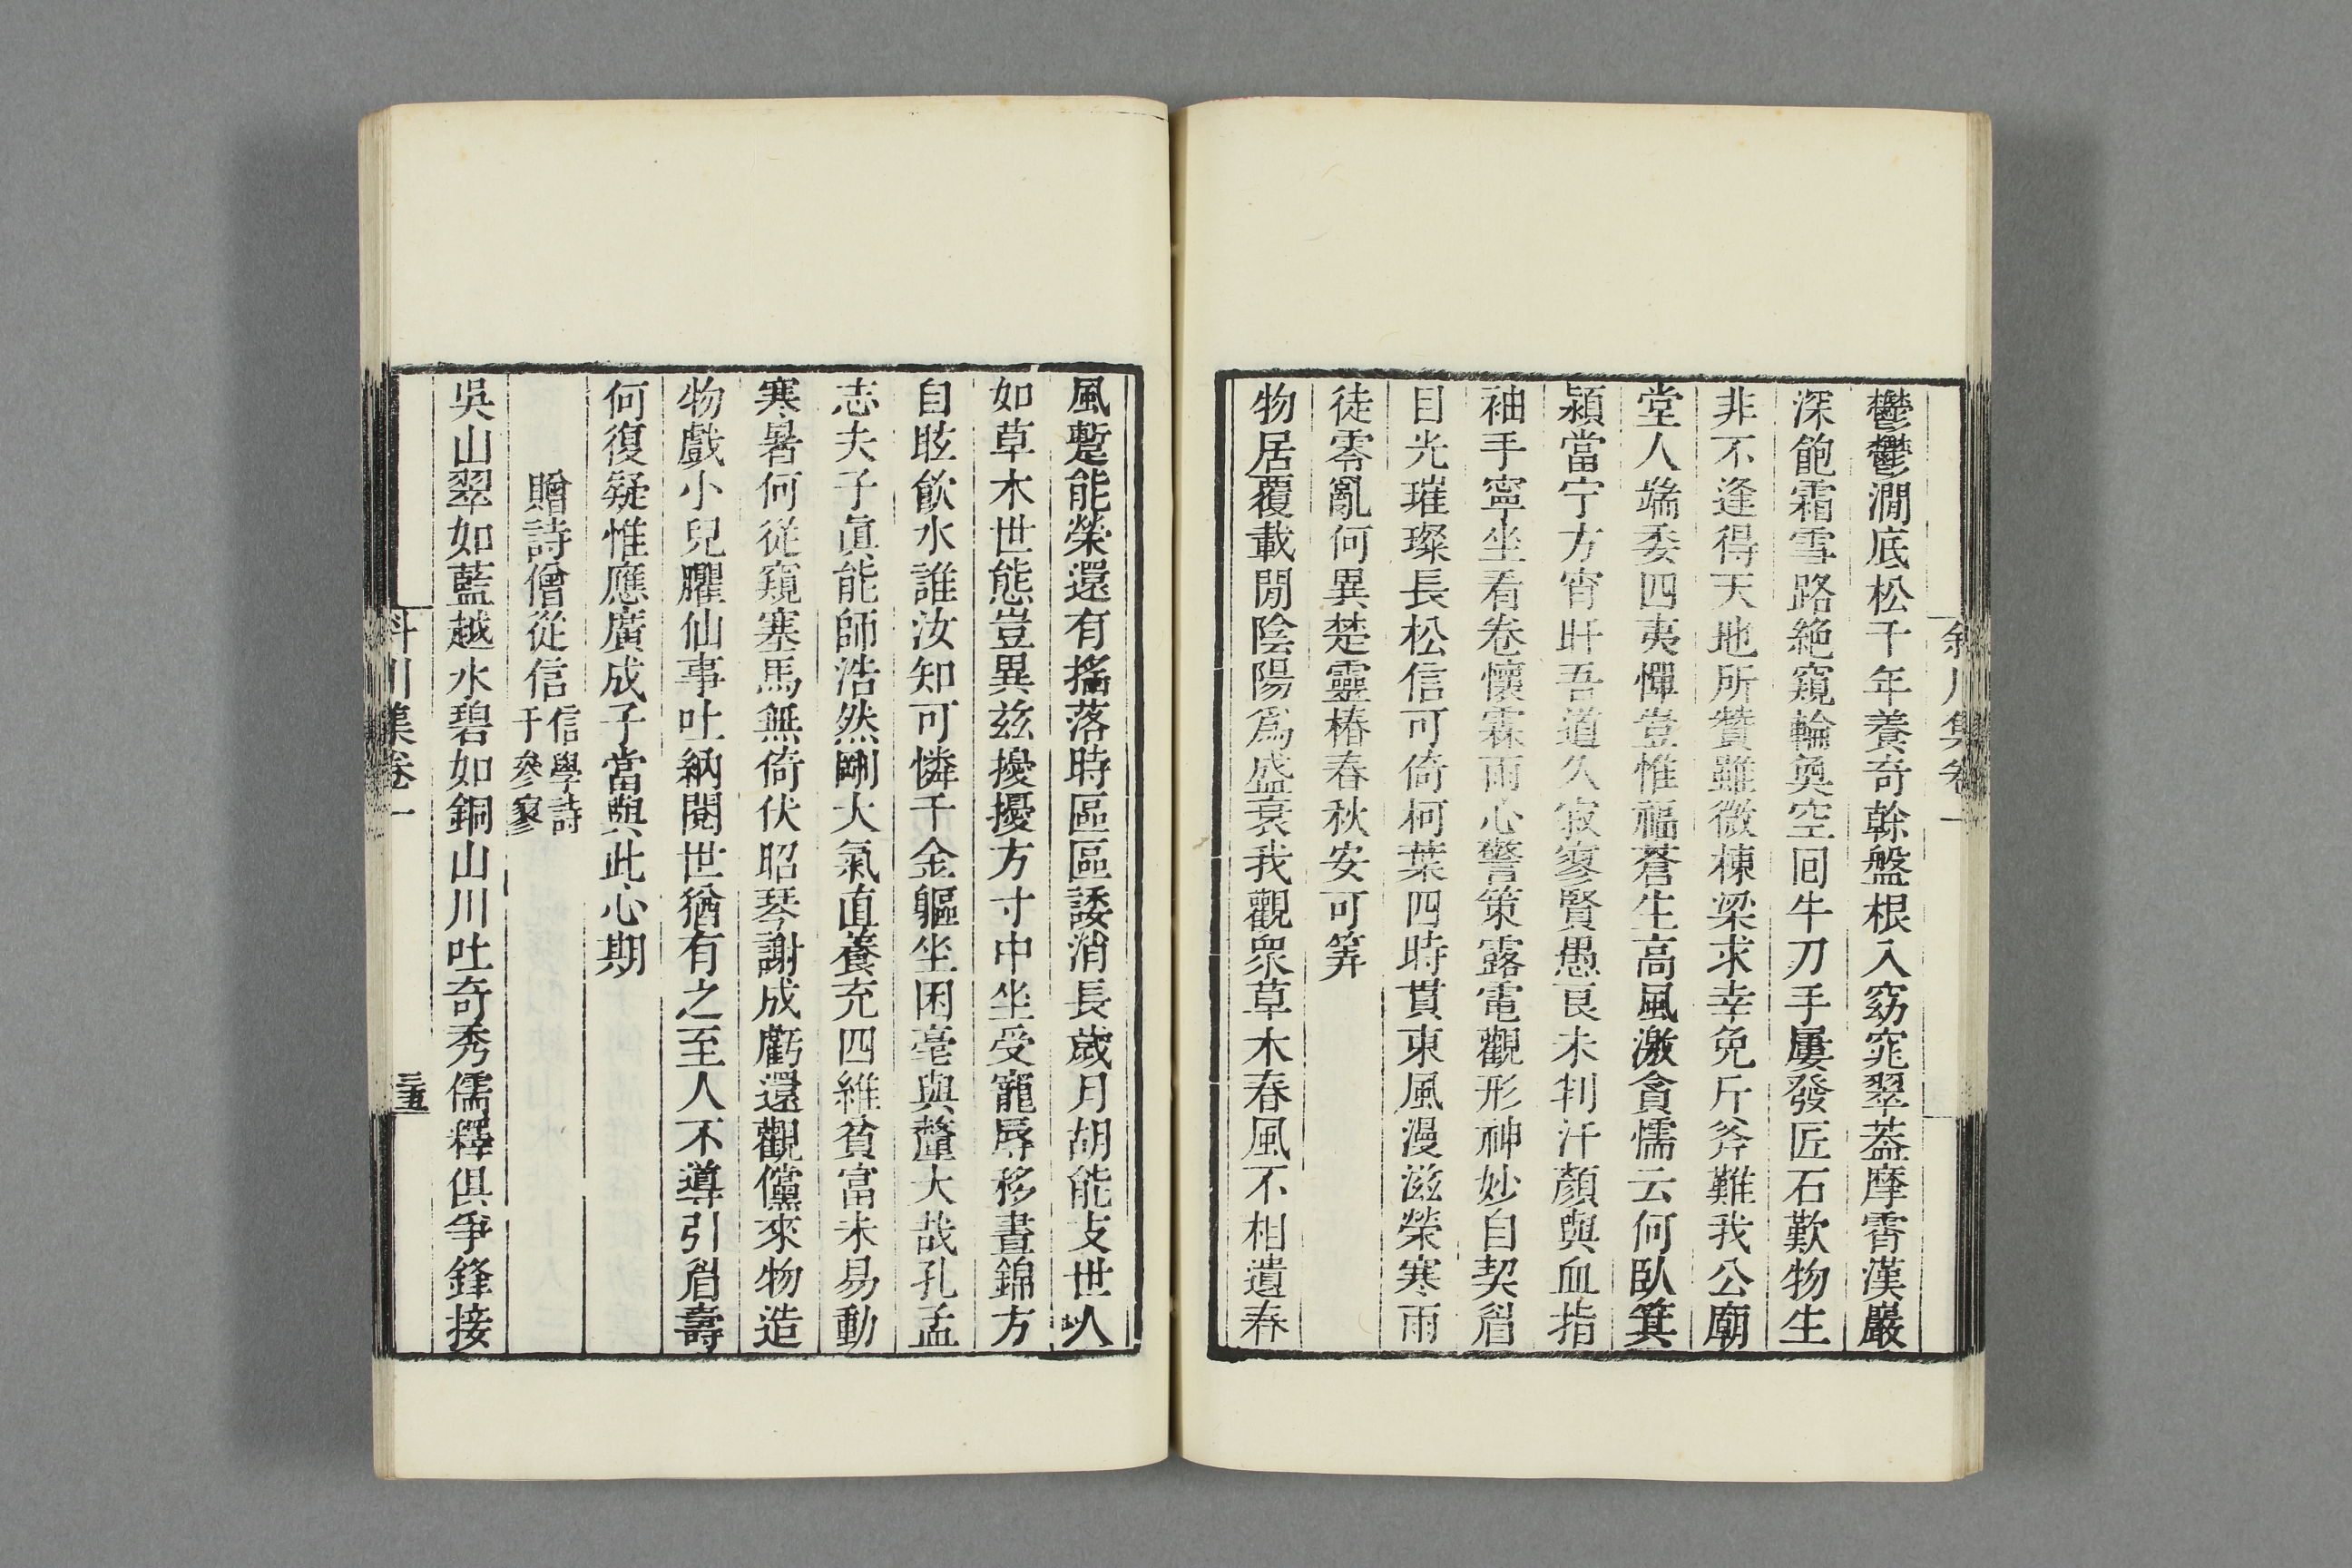 斜川集卷一
鬱鬱澗底松千年養奇榦盤根入窈窕翠蓋摩霄漢巖
深飽霜雪路絶窺輪奐空回牛刀手屢發匠石歎物生
非不逢得天地所贊雖微棟梁求幸免斤斧難我公廟
堂人端委四夷憚豈惟福蒼生高風激貪懦云何臥箕
潁當宁方宵旰吾道久寂寥賢愚良未判汗顏與血指
袖手寧坐看卷懷霖雨心警策露電觀形神妙自契眉
目光璀璨長松信可倚柯葉四時貫東風漫滋榮寒雨
徒零亂何異楚靈椿春秋安可筭
物居覆載閒陰陽爲盛衰我觀衆草木春風不相遺春
風蹔能榮還有搖落時區區諉消長歲月胡能支世人
如草木世態豈異兹擾擾方寸中坐受寵辱移晝錦方
自眩飮水誰汝知可憐千金軀坐困毫與釐大哉孔孟
志夫子眞能師浩然剛大氣直養充四維貧富未易動
寒暑何從窺塞馬無倚伏昭琴謝成虧還觀儻來物造
物戲小兒臞仙事吐納閱世猶有之至人不導引眉壽
何復疑惟應廣成子當與此心期
贈詩僧從信信學詩于參寥
吳山翠如藍越水碧如銅山川吐奇秀儒釋俱爭鋒接
斜川集卷一